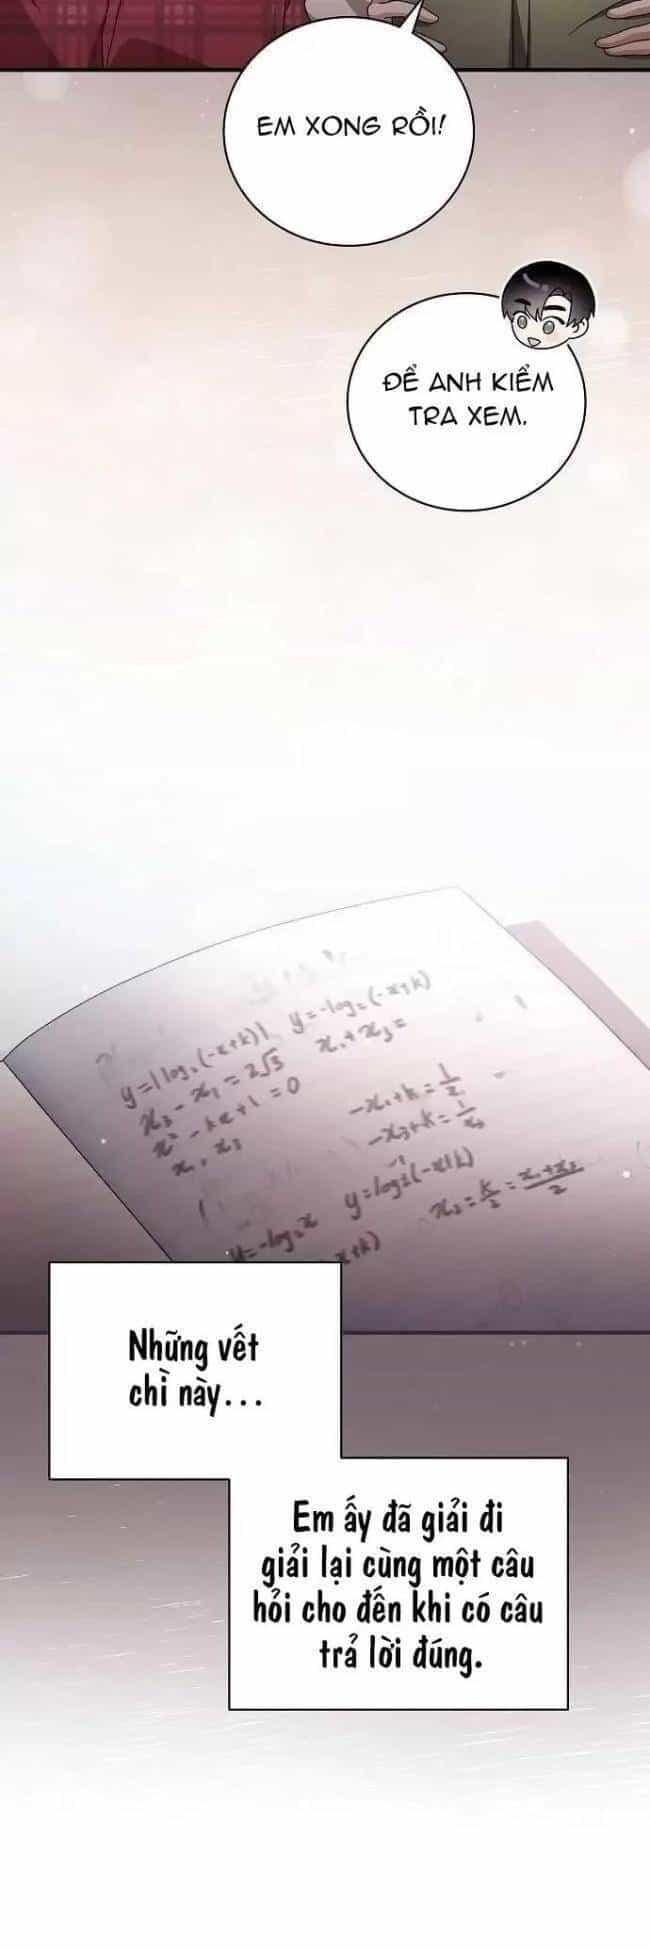 EM XONG RỒI!
ĐỂ ANH KIỂM
TRA XEM.
y=|log₂(-x+k)|
y=-log₂(-x+k)
x₃-x₁=2√3
x₁+x₃=
x²-kx+1=0
x₁, x₃
-x₁+k=
-x₃+k=
y=-log₂x
Những vết
chì này...
Em ấy đã giải đi
giải lại cùng một câu
hỏi cho đến khi có câu
trả lời đúng.